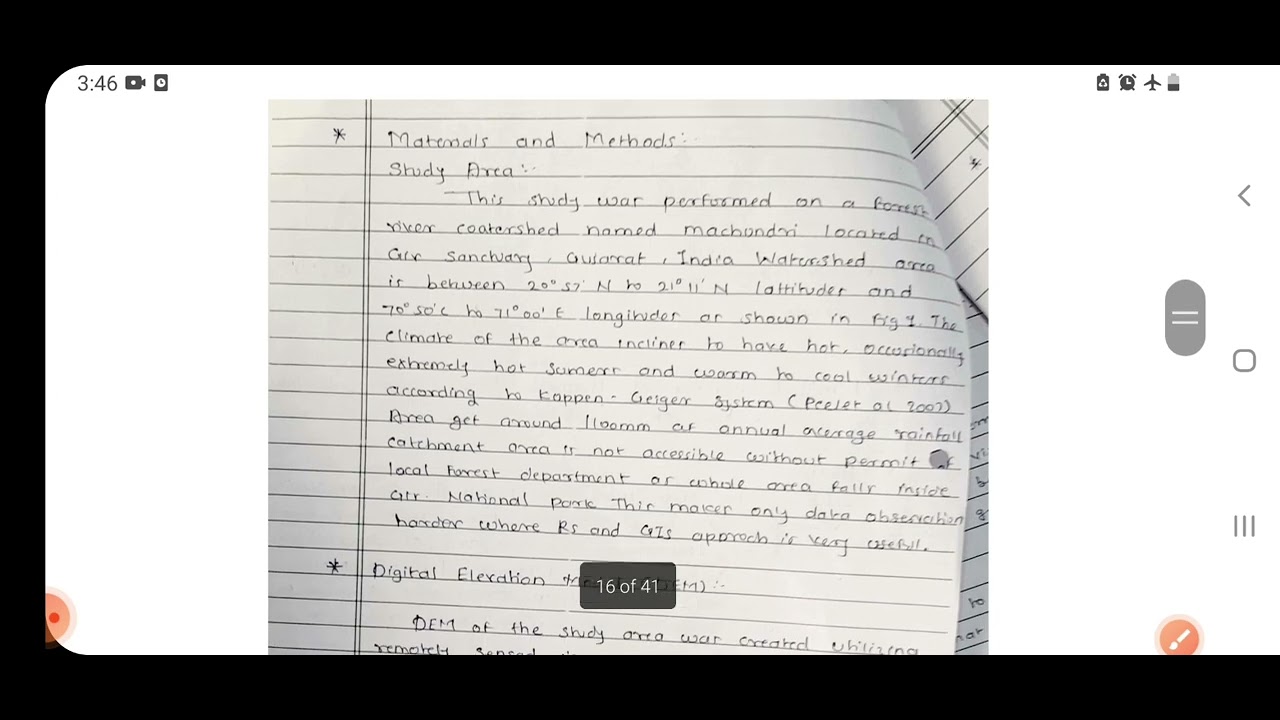 3:46
* Materials and Methods:-
Study Area:-
This study was performed on a forest
river coatershed named machundri located in
Gir Sanctuary, Gujarat, India Watershed area
is between 20° 57' N to 21° 11' N lattitudes and
70° 50' E to 71° 00' E longitudes as shown in Fig 1. The
climate of the area inclines to have hot, occusionally
extremely hot sumers and warm to cool winters
according to Koppen-Geiger System (Peel et al 2007)
Area get around 1100mm as annual average rainfall
catchment area is not accessible without permit of
local forest department as whole area falls inside
Gir National park This makes only data observation
harder where Rs and GIs approch is very useful.
* Digital Elevation (DEM):-
16 of 41
DEM of the study area was created utilizing
remotely sensed